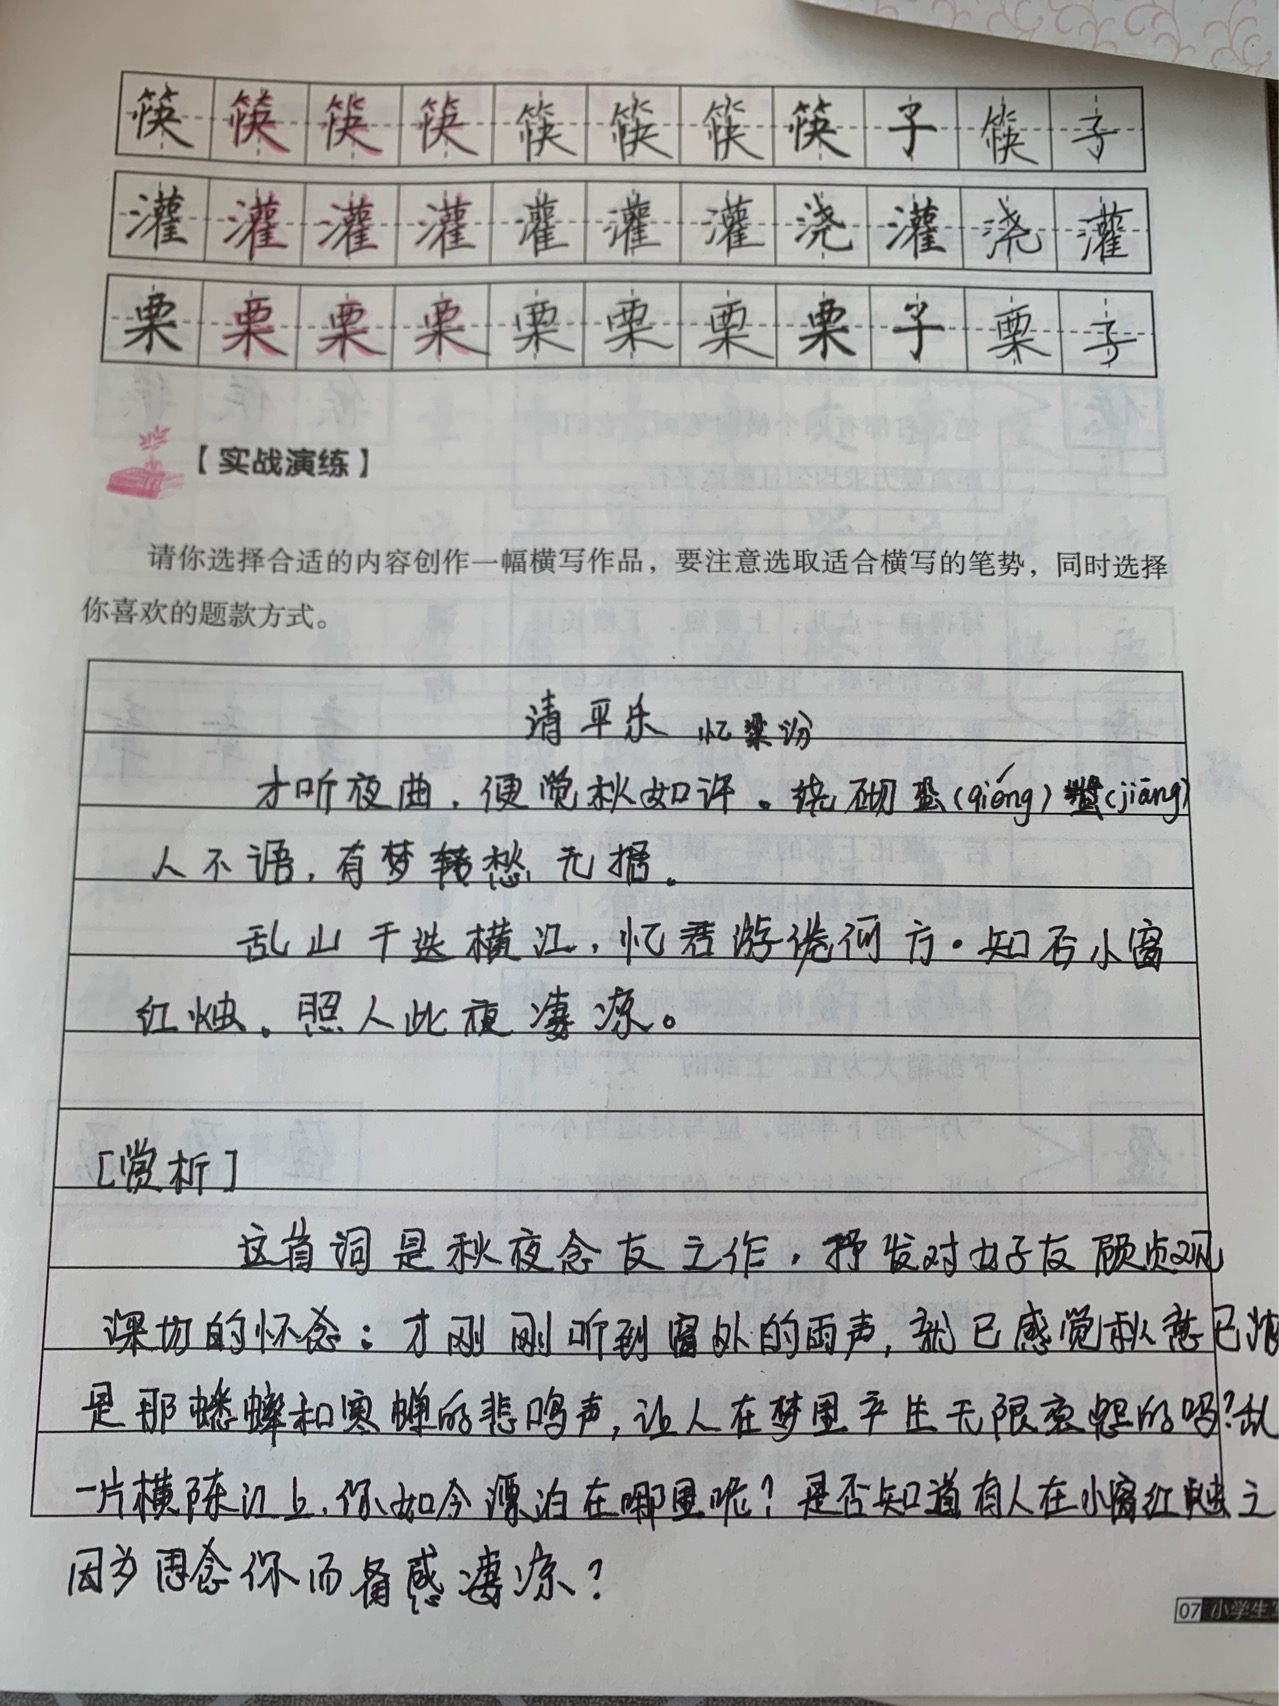 筷筷筷筷筷筷筷筷子筷子
灌灌灌灌灌灌灌浇灌浇灌
栗栗栗栗栗栗栗栗子栗子
【实战演练】
请你选择合适的内容创作一幅横写作品，要注意选取适合横写的笔势，同时选择
你喜欢的题款方式。
清平乐 忆梁汾
才听夜曲，便觉秋如许。绕砌蛩(qióng)螀(jiāng)
人不语，有梦转愁无据。
乱山千迭横江，忆君游倦何方。知否小窗
红烛。照人此夜凄凉。
[赏析]
这首词是秋夜念友之作，抒发对好友顾贞观
深切的怀念：才刚刚听到窗外的雨声，就已感觉秋意已浓
是那蟋蟀和寒蝉的悲鸣声，让人在梦里产生无限哀怨的吗？乱
一片横陈江上，你如今漂泊在哪里呢？是否知道有人在小窗红烛之
因为思念你而备感凄凉？
07 小学生